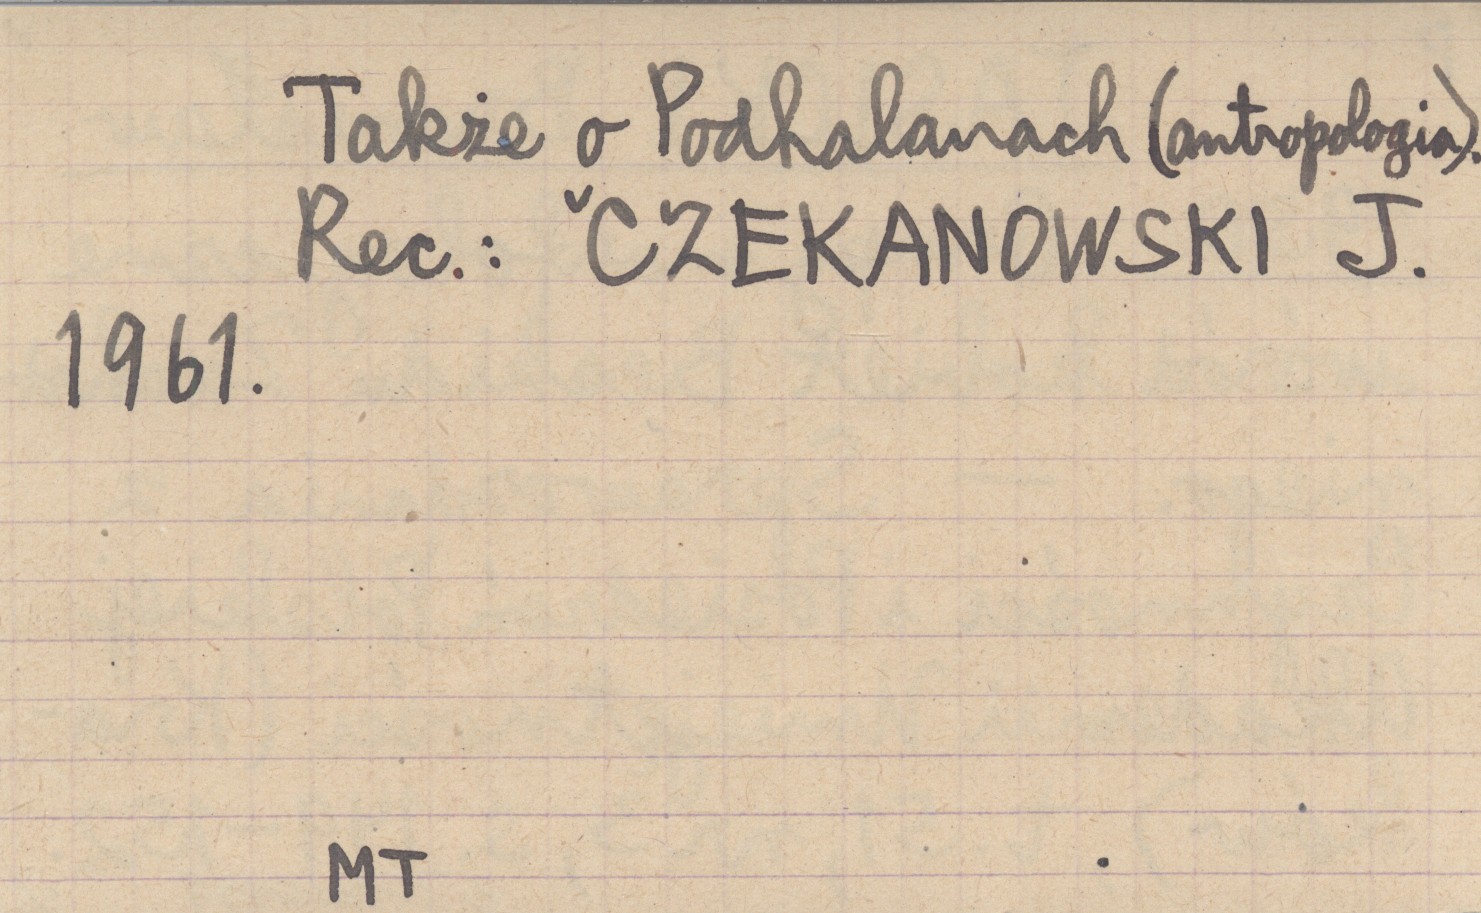 Także o Podhalanach (antropologia).
Rec.: ˇCZEKANOWSKI J.
1961.
MT